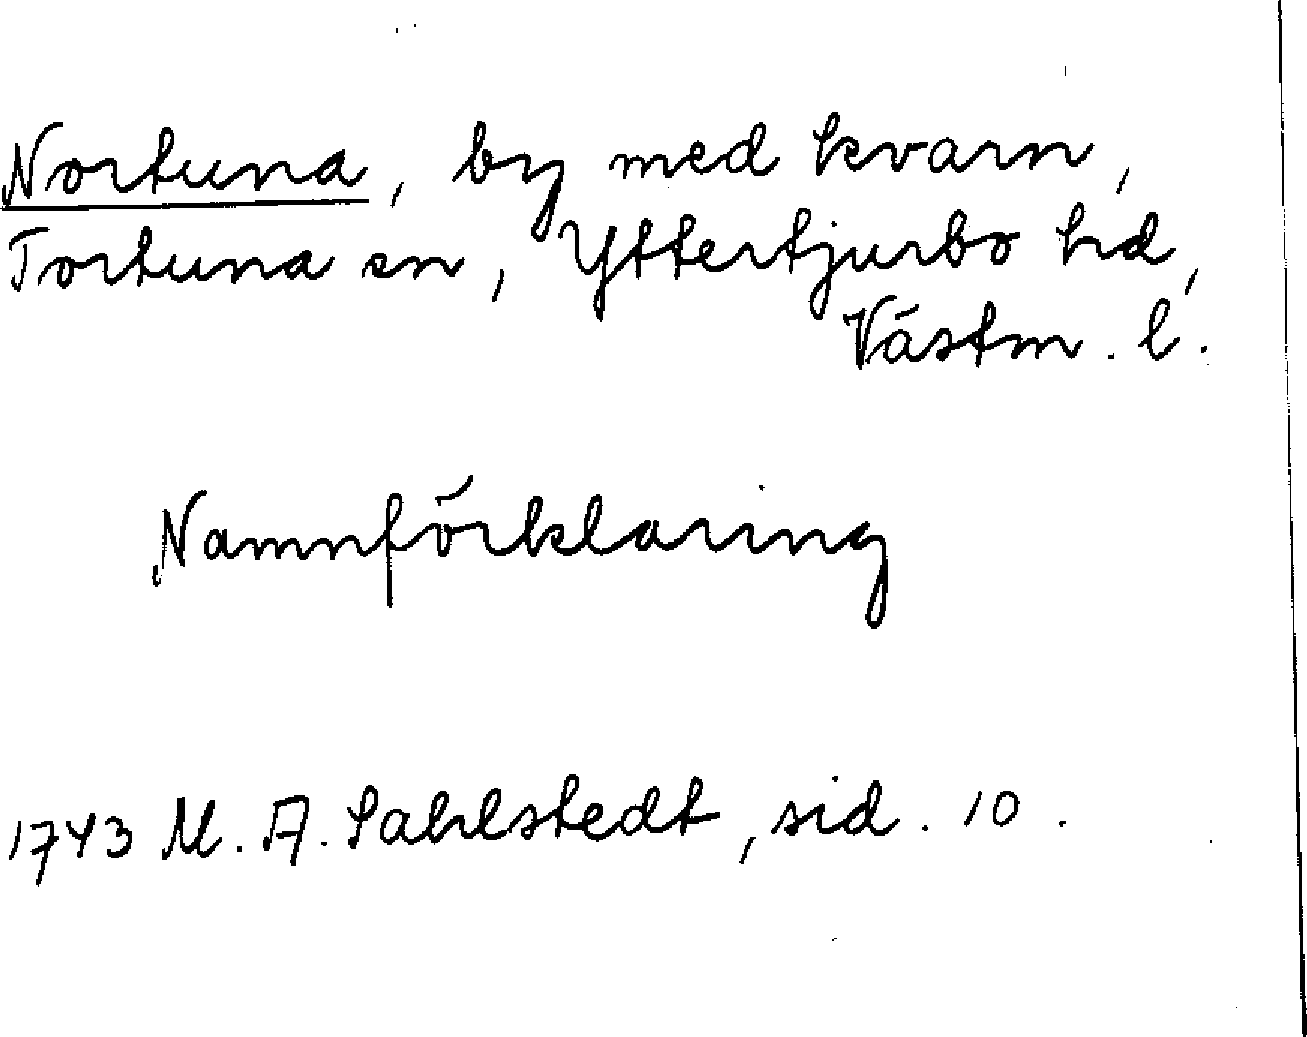 Nortuna, by med kvarn,
Tortuna sn, Yttertjurbo hd,
Västm. l.
Namnförklaring
1743 M. A. Sahlstedt, sid. 10.